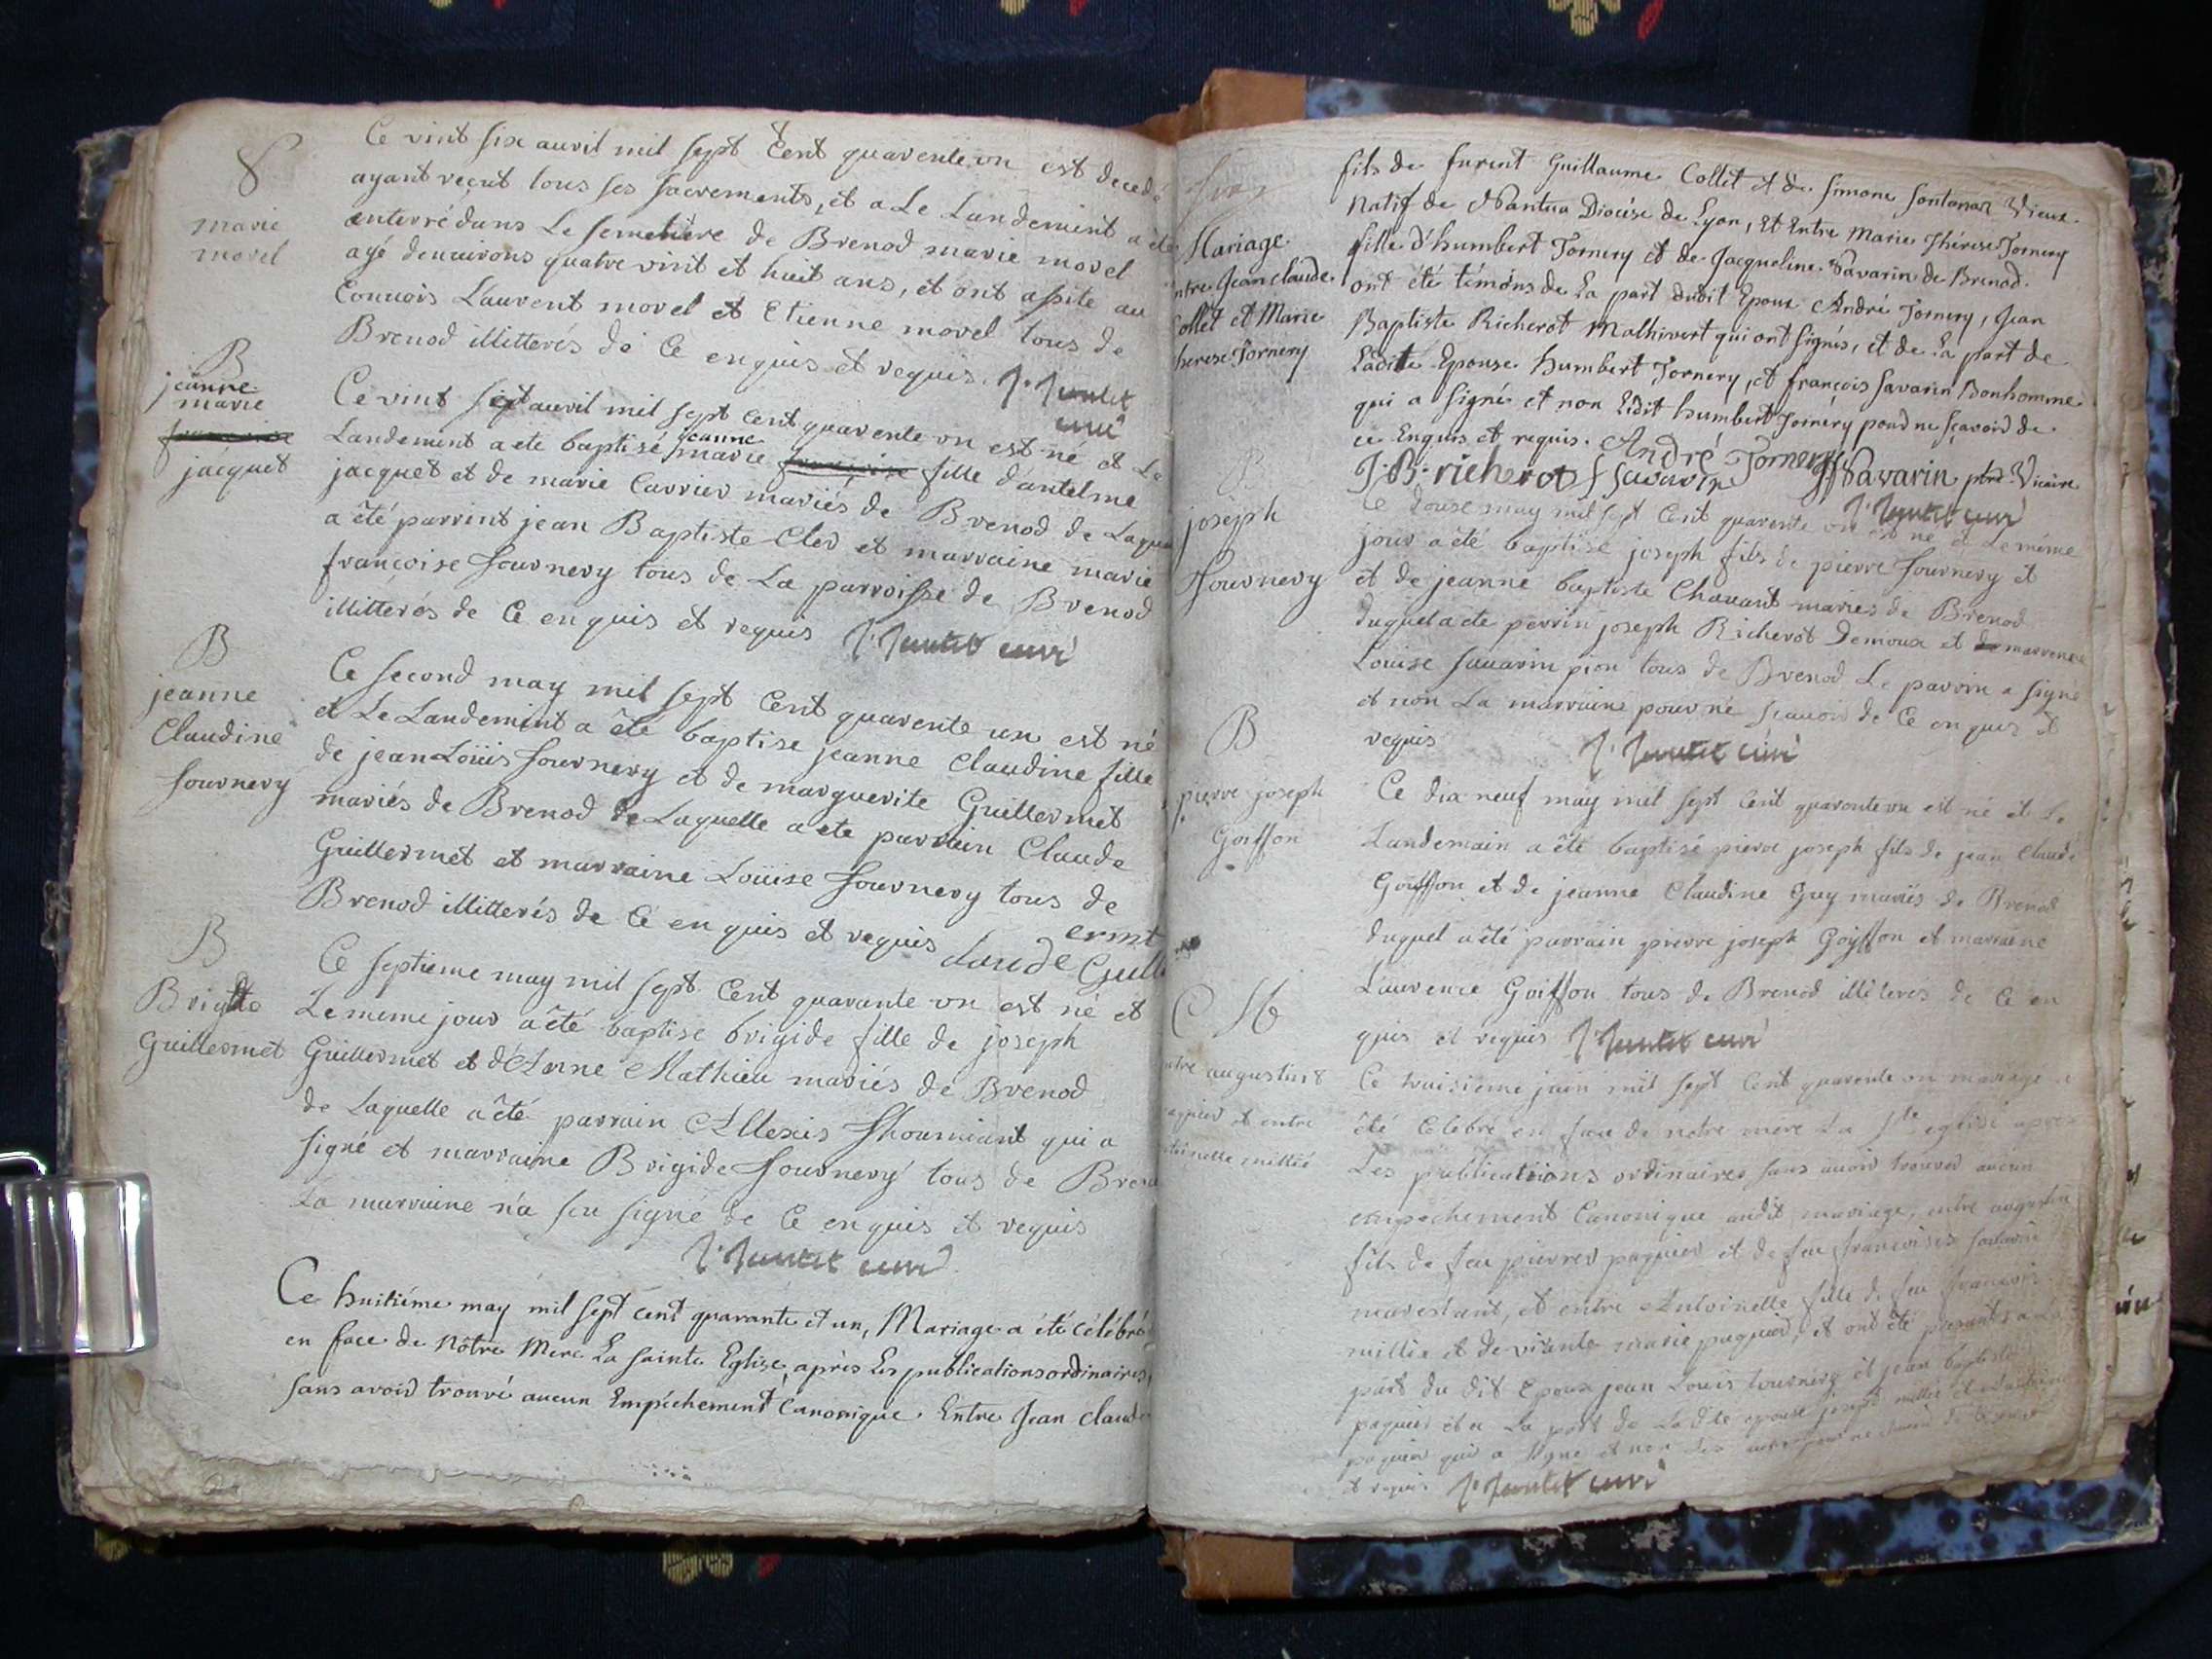 S
marie
morel
Ce vint six avril mil sept cent quarente un est decedé
ayant reçut tous ses sacrements, et a Le Landemint a été
enterré dans Le semetière de Brenod marie morel
agé denvirons quatre vint et huit ans, et ont assité au
Convois Laurent morel et Etienne morel tous de
Brenod illitterés de Ce enquis et requis. curé
B
jeanne
marie
jacquet
Ce vint sept avril mil sept cent quarente un est né et Le
Landemint a ete baptisé jeanne marie fille d'antelme
jacquet et de marie Carrier mariés de Brenod de Laquelle
a été parrint jean Baptiste Cler et marraine marie
françoise Tournery tous de La parroisse de Brenod
illitterés de Ce enquis et requis curé
B
jeanne
Claudine
Tournery
Ce second may mil sept Cent quarente un est né
et Le Landemint a été baptise jeanne Claudine fille
de jean Loüis Tournery et de marguerite Guillermet
mariés de Brenod de Laquelle a ete parrain Claude
Guillermet et marraine Loüise Tournery tous de
Brenod illitterés de Ce enquis et requis Claude Guillermet
B
Brigitte
Guillermet
Ce septieme may mil sept Cent quarante un est né et
Le meme jour a été baptise brigide fille de joseph
Guillermet et d'Anne Mathieu mariés de Brenod
de Laquelle a été parrain Allexis qui a
signé et marraine Brigide Tournery tous de Brenod
La marraine n'a seu signé de Ce enquis et requis
curé
Ce huitiéme may mil sept cent quarante et un, Mariage a été célébré
en face de Nôtre Mere La sainte Eglise, après Les publications ordinaires,
sans avoir trouvé aucun Empéchement Canonique. Entre Jean Claude
Mariage
ntre Jean Claude
Collet et Marie
herese Tornery
fils de Guillaume Collet et de Simone
Natif de Nantua Diocése de Lyon, Et Entre Marie Thérese Tornery
fille d'humbert Tornery et de Jacqueline Savarin de Brenod.
ont été témóns de La part dudit Epoux André Tornery, Jean
Baptiste Richerot Malhivert qui ont signés, et de La part de
Ladite Epouse humbert Tornery, et françois Savarin Bonhomme
qui a signé et non Ledit humbert Tornéry pour ne sçavoir de
ce Enquis et requis. André Tornery
J. B. richerot f savarin Savarin ptre Vicaire
curé
B
joseph
Tournery
Ce douse may mil sept Cent quarente un est né et Le même
jour a été baptise joseph fils de pierre Tournery et
et de jeanne baptiste Chavant mariés de Brenod
duquel a ete perrin joseph Richerot Demoux et marrene
Louise savarin pion tous de Brenod Le parrin a signé
et non La marraine pour ne scauoir de Ce enquis et
requis curé
B
pierre joseph
Goiffon
Ce dix neuf may mil sept Cent quarente un est né et Le
Landemain a été baptisé pierre joseph fils de jean Claude
Goiffon et de jeanne Claudine Guy mariés de Brenod
duquel a été parrain pierre joseph Goiffon et marraine
Laurence Goiffon tous de Brenod illiterés de Ce en
quis et requis curé
ntre augustint
paquier et entre
toinette millié
Ce troisieme juin mil sept Cent quarente un mariage a
été Celebré en face de notre mere La Ste eglise apres
Les publications ordinaires sans avoir trouver aucun
empechement Canonique audit mariage, entre augustin
fils de feu pierrer paquier et de feu françoise savarin
et entre Antoinette fille de feu francois
millié et de vivante marie paquier, et ont été presents a La
part du dit Epoux jean Louis tournery et jean baptiste
paquier et a La part de La dite epouse joseph millié et
paquier qui a signé et non Les
et requis curé